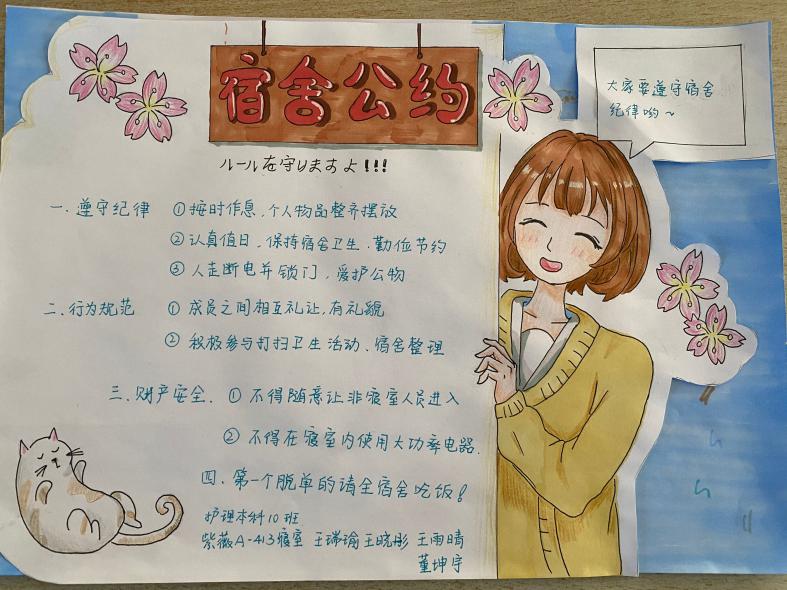 宿舍公约
大家要遵守宿舍
纪律哟~
ルールを守りますよ!!!
一.遵守纪律 ①按时作息,个人物品整齐摆放
②认真值日,保持宿舍卫生、勤俭节约
③人走断电并锁门,爱护公物
二.行为规范 ①成员之间相互礼让,有礼貌
②积极参与打扫卫生活动、宿舍整理
三.财产安全. ①不得随意让非寝室人员进入
②不得在寝室内使用大功率电器.
四.第一个脱单的请全宿舍吃饭!
护理本科10班
紫薇A-413寝室 王瑞瑜 王晓彤 王雨晴
董坤宇